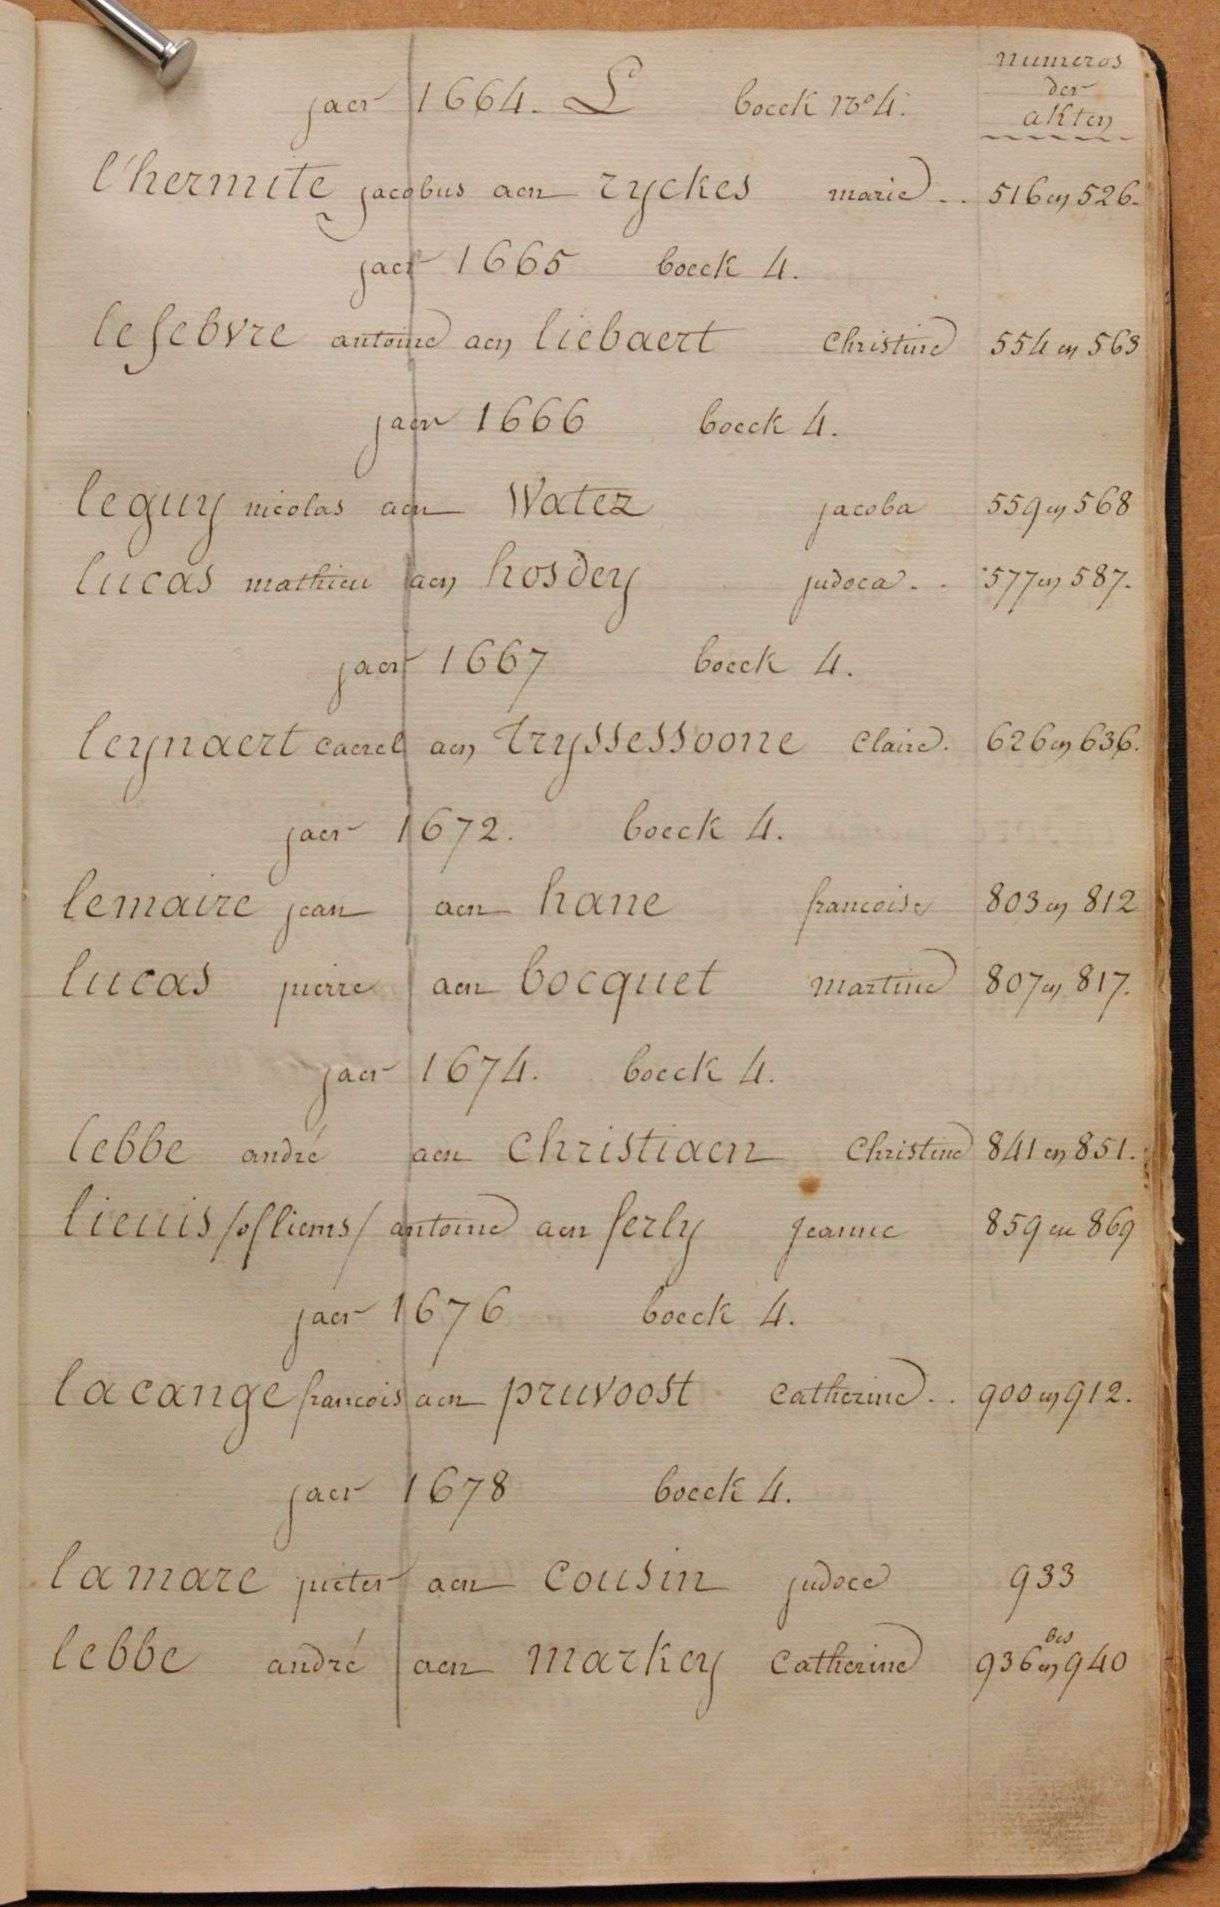 numeros
der
jaer 1664. L boeck no 4. akten
l'hermite jacobus aen ryckes marie .. 516 en 526.
jaer 1665 boeck 4.
lefebvre antoine aen liebaert Christine 554 en 563
jaer 1666 boeck 4.
leguy nicolas aen Watez jacoba 559 en 568
lucas mathieu aen hosdey judoca .. 577 en 587.
jaer 1667 boeck 4.
leynaert caerel aen tryssessoone Claire. 626 en 636.
jaer 1672. boeck 4.
lemaire jean aen hane francoise 803 en 812
lucas pierre aen bocquet martine 807 en 817.
jaer 1674. boeck 4.
lebbe andré aen Christiaen Christine 841 en 851.
lieuis /of liems/ antoine aen ferly Jeanne 859 en 869
jaer 1676 boeck 4.
lacange francois aen pruvoost Catherine .. 900 en 912.
jaer 1678 boeck 4.
lamare pieter aen cousin judoce 933
bis
lebbe andré aen markey Catherine 936 en 940